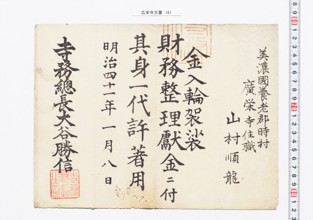 美濃國養老郡時村
廣栄寺住職
山村順龍
金入輪袈裟
財務整理獻金ニ付
其身一代許著用
明治四十一年一月八日
寺務總長大谷勝信